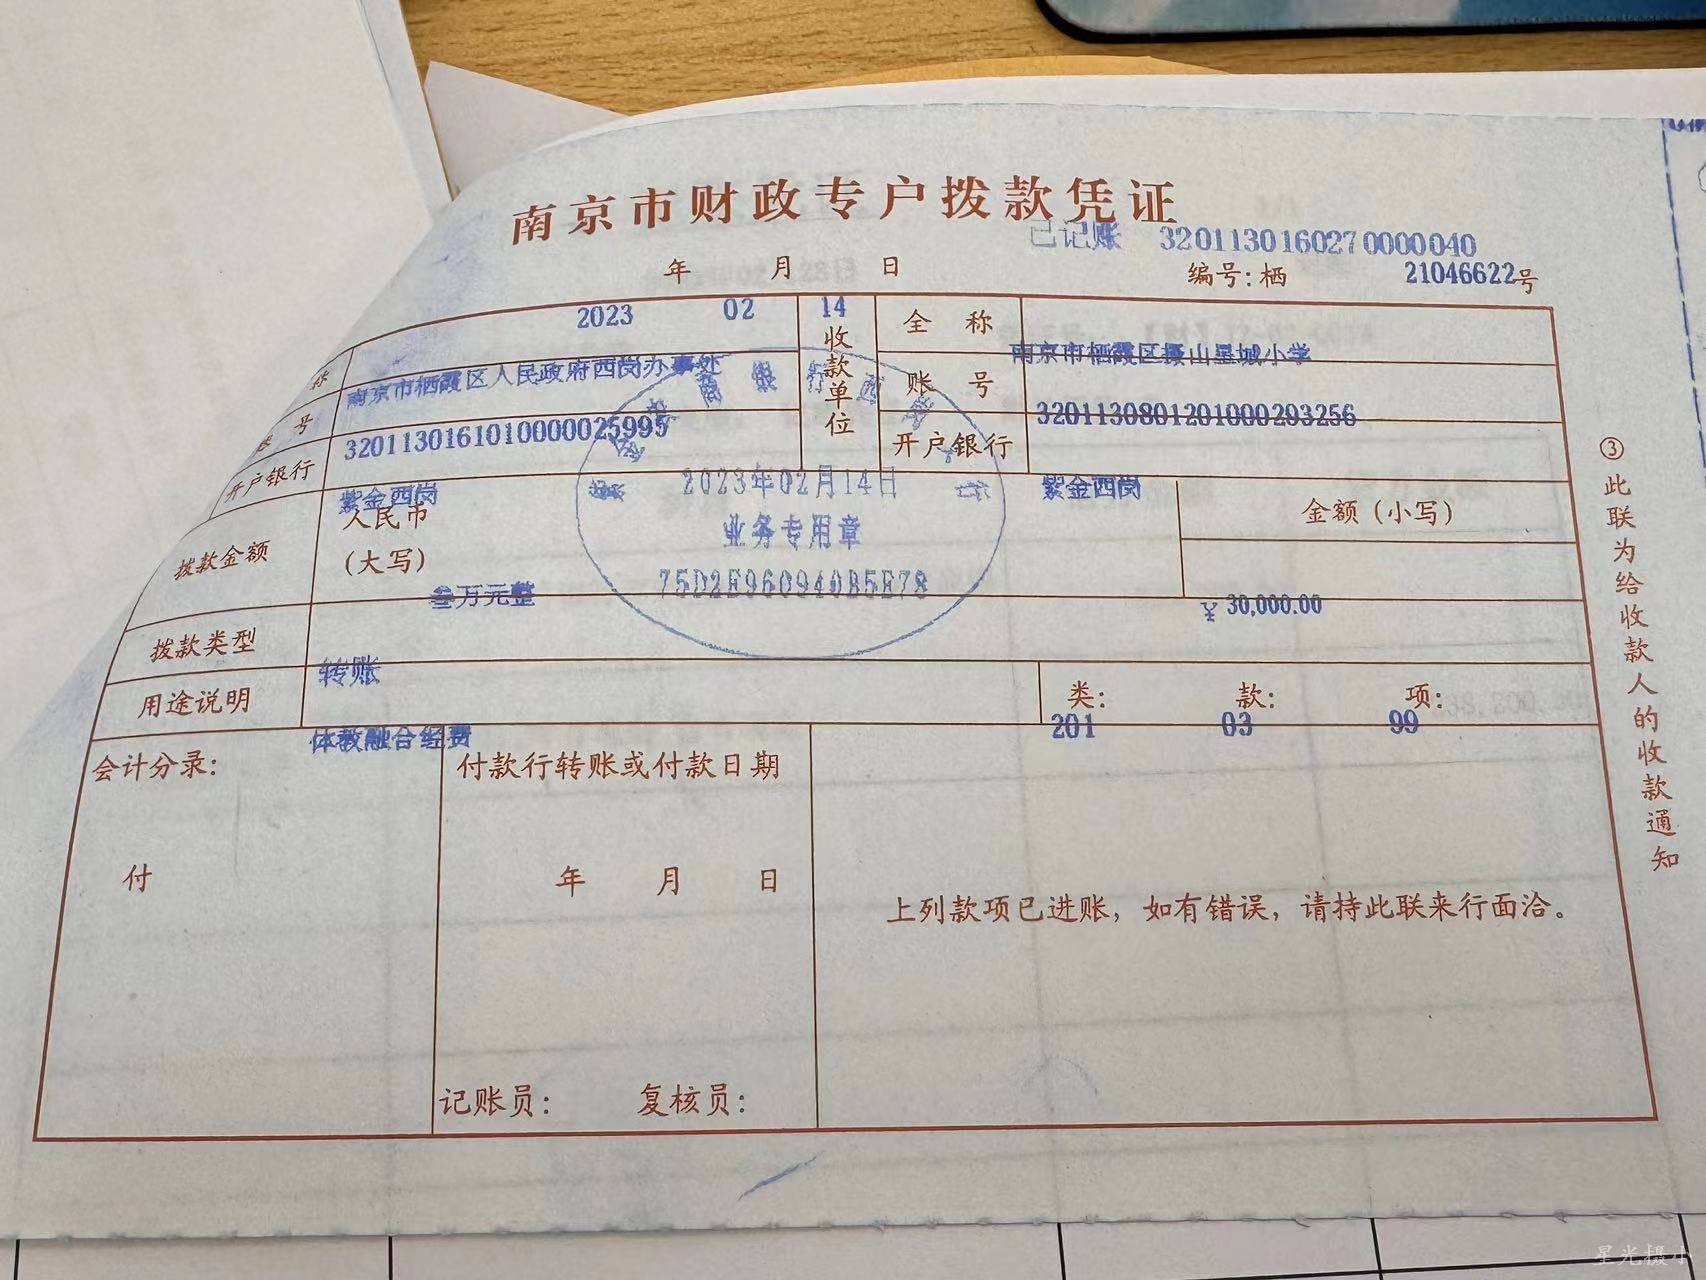 南京市财政专户拨款凭证
已记账 3201130160270000040
年 月 日 编号:栖 21046622号
2023 02 14
称 南京市栖霞区人民政府西岗办事处
号 3201130161010000025995
开户银行 紫金西岗
收款单位
全 称 南京市栖霞区摄山星城小学
账 号 3201130801201000293256
开户银行 紫金西岗
拨款金额 人民币
(大写) 叁万元整
金额(小写)
¥ 30,000.00
2023年02月14日
业务专用章
75D2E960940B5E78
拨款类型 转账
用途说明 体教融合经费
类: 款: 项:
201 03 99
会计分录:
付
付款行转账或付款日期
年 月 日
记账员: 复核员:
上列款项已进账，如有错误，请持此联来行面洽。
③此联为给收款人的收款通知
星光摄小